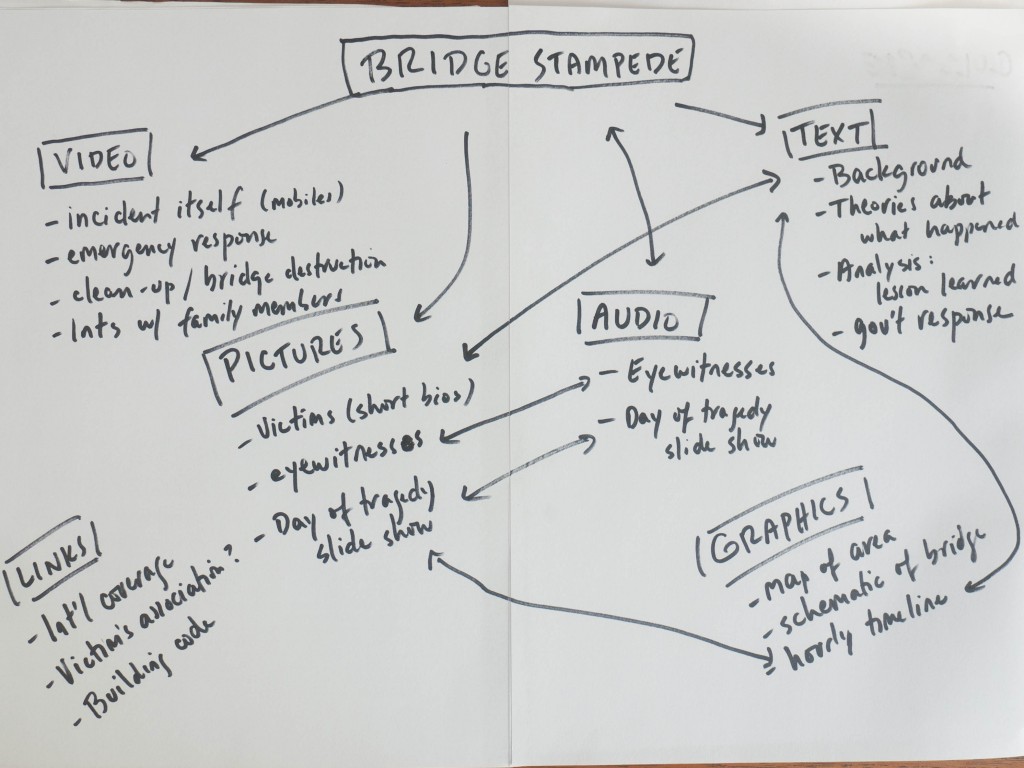 BRIDGE STAMPEDE
VIDEO
- incident itself (mobiles)
- emergency response
- clean-up / bridge destruction
- Ints w/ family members
PICTURES
- Victims (short bios)
- eyewitnesses
- Day of tragedy
slide show
AUDIO
- Eyewitnesses
- Day of tragedy
slide show
TEXT
- Background
- Theories about
what happened
- Analysis:
lesson learned
- gov't response
LINKS
- Int'l coverage
- Victim's association?
- Building code
GRAPHICS
- map of area
- schematic of bridge
- hourly timeline